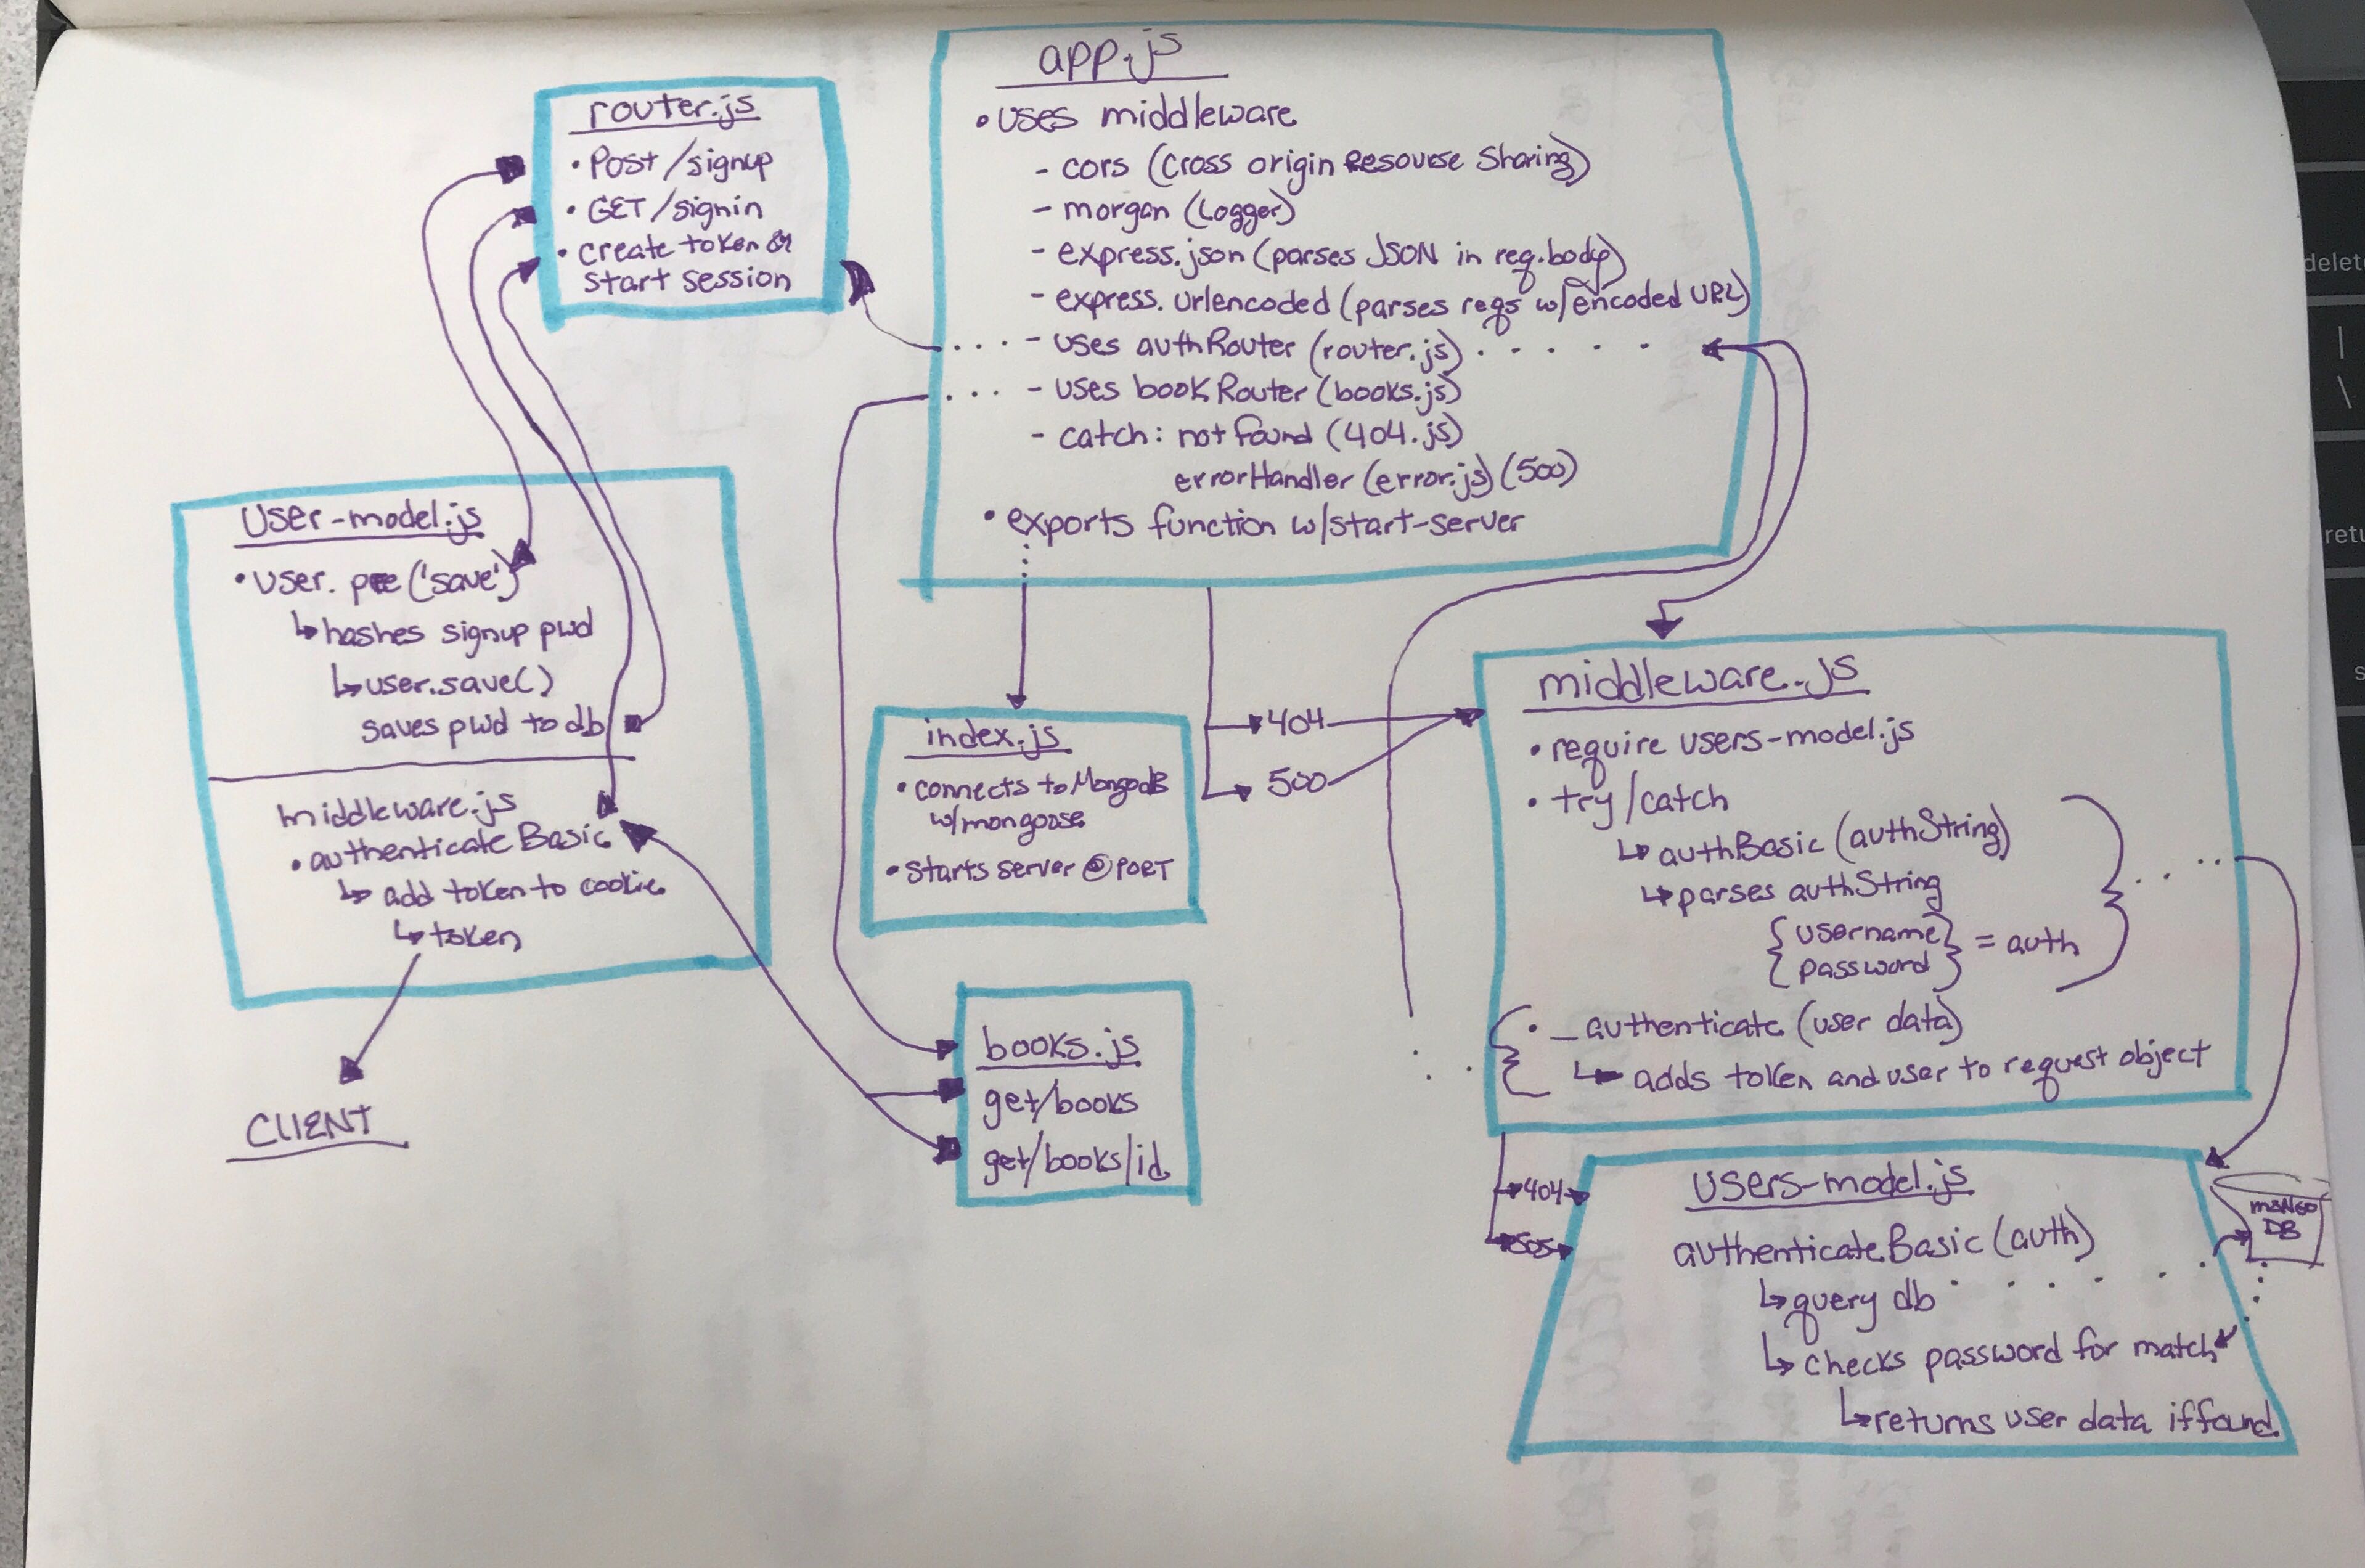 router.js
• Post /signup
• GET /signin
• create token &
start session
app.js
• uses middleware
- cors (cross origin Resourse Sharing)
- morgan (Logger)
- express.json (parses JSON in req.body)
- express.urlencoded (parses reqs w/encoded URL)
- uses authRouter (router.js)
- uses bookRouter (books.js)
- catch: not found (404.js)
errorHandler (error.js) (500)
• exports function w/start-server
User-model.js
• User. pre ('save')
↳ hashes signup pwd
↳ user.save()
saves pwd to db
middleware.js
• authenticate Basic
↳ add token to cookie
↳ token
CLIENT
index.js
• connects to MongoDB
w/mongoose
• Starts server @ PORT
404
500
books.js
get/books
get/books/id
middleware.js
• require users-model.js
• try/catch
↳ authBasic (authString)
↳ parses authString
{username
password} = auth
• _authenticate (user data)
↳ adds token and user to request object
404
505
users-model.js
authenticateBasic (auth)
↳ query db
↳ checks password for match
↳ returns user data if found
DB
delete
|
\
retu
s